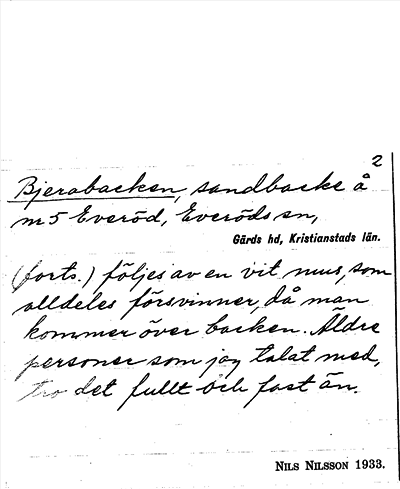 2
Bjerabacken, sandbacke å
m5 Everöd, Everöds sn,
Gärds hd, Kristianstads län.
(forts.) följes av en vit mus, som
alldeles försvinner, då man
kommer över backen. Äldre
personer som jag talat med,
tro det fullt och fast än.
NILS NILSSON 1933.